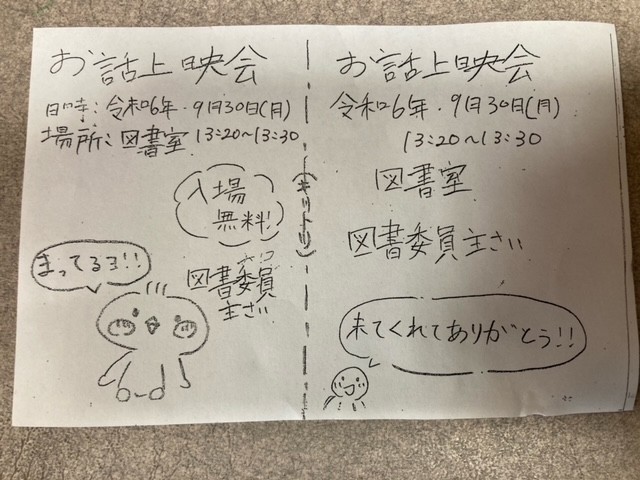 お話上映会
日時:令和6年.9月30日(月)
場所:図書室 13:20~13:30
入場
無料!
まってるヨ!!
図書委員
主さい
(キリトリ)
お話上映会
令和6年.9月30日(月)
13:20~13:30
図書室
図書委員主さい
来てくれてありがとう!!